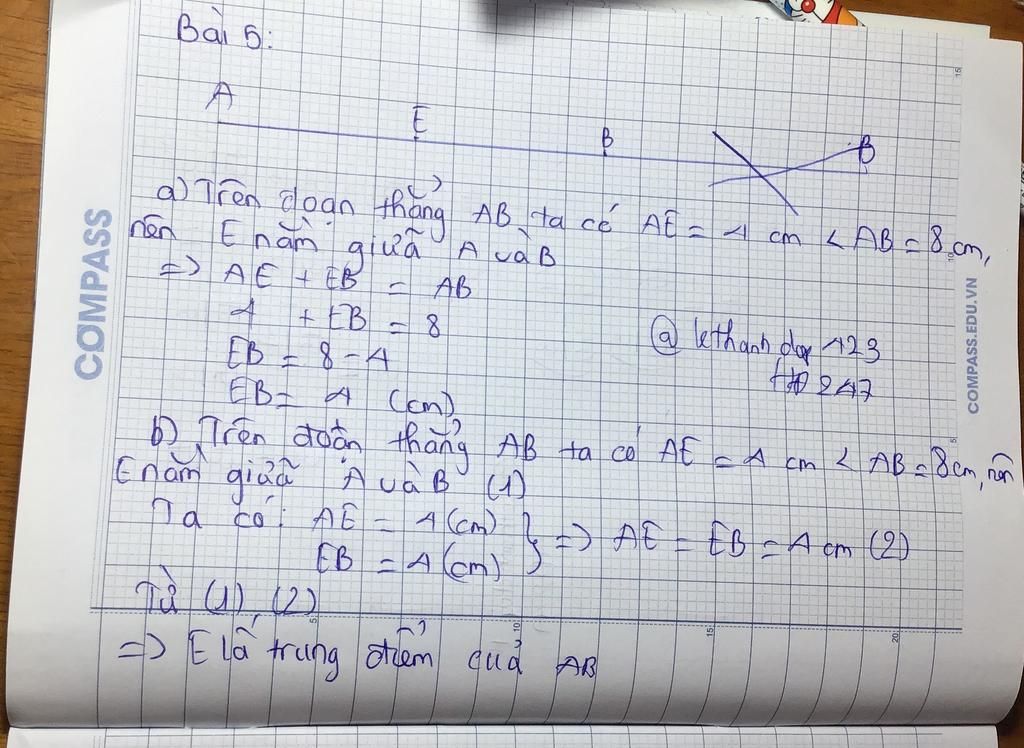 Bài 5:
A E B B
a) Trên đoạn thẳng AB ta có AE = 4 cm < AB = 8 cm,
nên E nằm giữa A và B
=> AE + EB = AB
4 + EB = 8
EB = 8 - 4
EB = 4 (cm)
@ lethanh 123
247
b) Trên đoạn thẳng AB ta có AE = 4 cm < AB = 8cm, nên
E nằm giữa A và B (1)
Ta có: AE = 4 (cm)
EB = 4 (cm) } => AE = EB = 4 cm (2)
Từ (1), (2)
=> E là trung điểm quả AB
COMPASS
COMPASS.EDU.VN
5 10 15 20
5 10 15